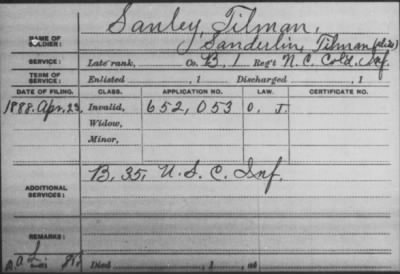 NAME OF SOLDIER: Sanley, Tilman,
Sanderlin, Tilman (alias)
SERVICE: Late rank, Co. B, 1 Reg't N.C. Col'd. Inf.
TERM OF SERVICE: Enlisted , 1 Discharged , 1
DATE OF FILING. CLASS. APPLICATION NO. LAW. CERTIFICATE NO.
1888. Apr. 23. Invalid, 652,053 O. J.
Widow,
Minor,
ADDITIONAL SERVICES: B. 35, U. S. C. Inf.
REMARKS:
Died , 1